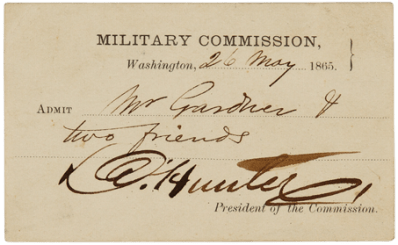 MILITARY COMMISSION,
Washington, 26 May 1865.
ADMIT Mr Gardner &
two friends
D. Hunter
President of the Commission.